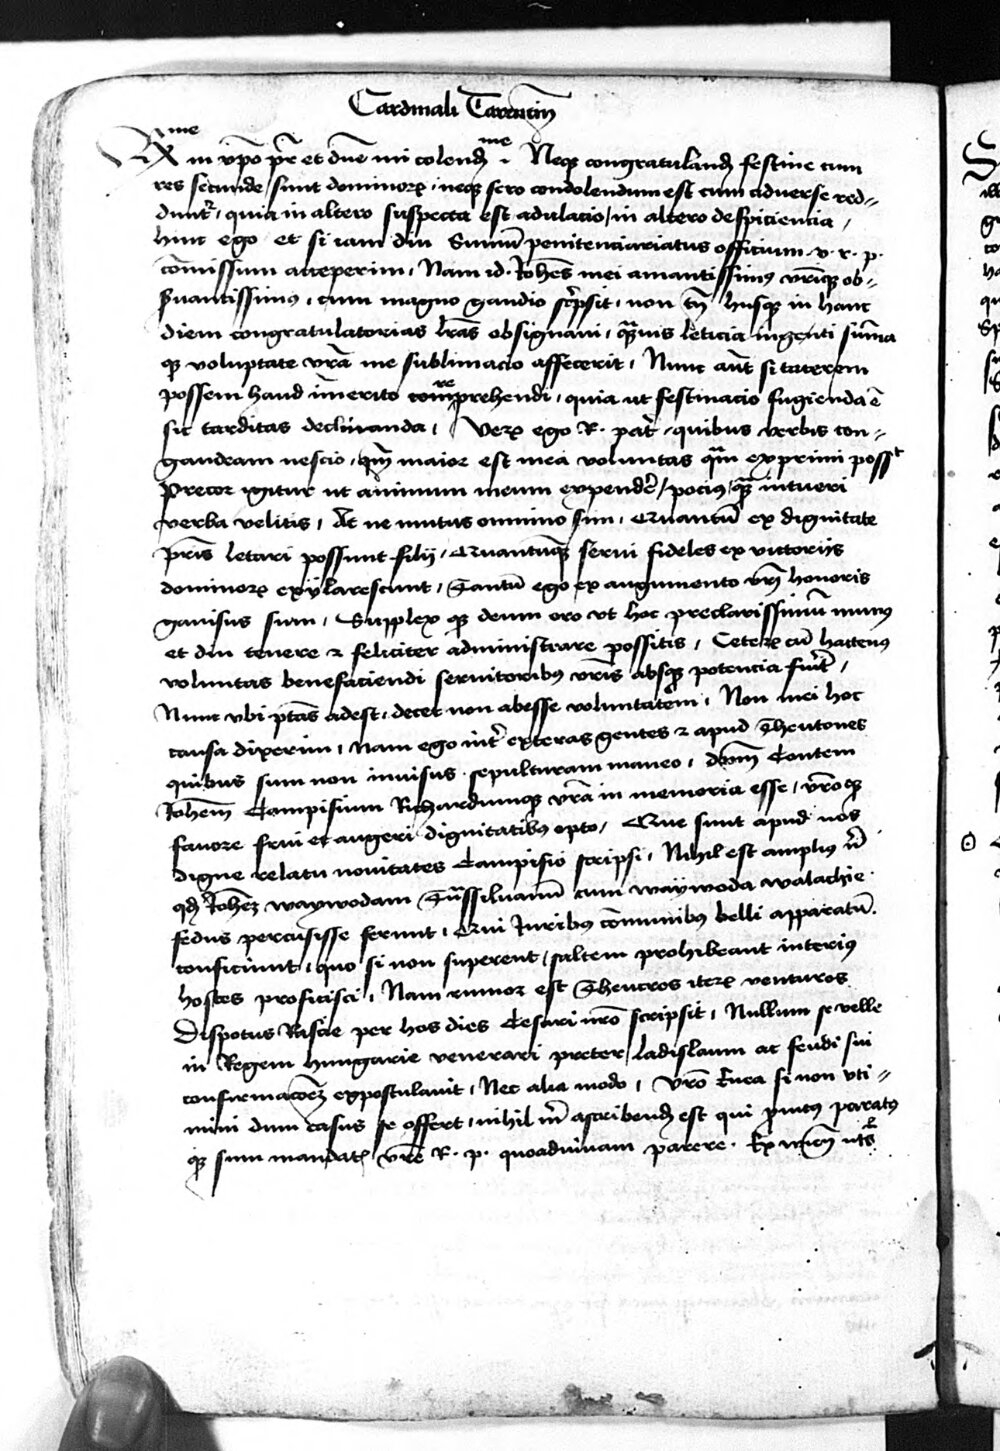 Cardinali Tarentin̄
Rme in xp̄o pr̄ et dn̄e mi colend̄ me. Neqꝫ congratulanđ festine cum
res secunde sunt dominorꝝ, neqꝫ sero condolendum est cum adverse red-
dunt̄r, quia in altero suspecta est adulacio, in altero despiciencia,
hinc ego et si iam diu Summū penitenciariatus officium v. r. p.
cōmissum acceperim, Nam id Johēs mei amantissimus vr̄iqꝫ ob-
ẜuantissimus, cum magno gaudio sc̄psit, non tn̄ husqꝫ in hanc
diem congratulatorias lr̄as obsignaui, quāuis leticia ingenti sūma
qꝫ voluptate vr̄a me sublimacio affecerit, Nunc aūt si tacerem
possem haud īmerito comprehendi, quia ut festinacio fugienda ē
sic tarditas declinanda, Verꝝ ego R. pat̄, quibus verbis con-
gaudeam nescio, qm̄ maior est mea voluntas quā exprimi posst
Precor igitur ut animum meum expendē, pocius, quā intueri
verba velitis, At ne mutus omnino sim, Quantū ex dignitate
pr̄is letari possunt filij, Quantūqꝫ serui fideles ex victorijs
dominorꝝ exÿlarescunt, Tantū ego ex augumento vr̄i honoris
gauisus sum, Supplex qꝫ deum oro vt hoc preclarissimū munus
et diu tenere ⁊ feliciter administrare possitis, Ceterꝝ cū hactenus
voluntas benefaciendi seruitoribus vr̄is absqꝫ potencia fuīt,
Nunc vbi ptās adest, decet non abesse voluntatem, Non mei hoc
causa dixerim, nam ego int̄ exteras gentes ⁊ apud Theutones
quibus sum non inuisus sepulturam maneo, dn̄m Contem
Johēm Campisium Richardumqꝫ vr̄a in memoria esse, vr̄oqꝫ
fauore frui et augeri dignitatibus opto, Que sunt apud nos
digne relatu nouitates Campisio scripsi, Nihil est amplius nī
qđ Johēꝫ waywodam Trāssiluanū cum waÿwoda walachie
fedus percusisse ferunt, Qui Juribus cōmunibus belli apparatū
conficiunt, quo si non superent, saltem prohibeant interius
hostes proficisci, Nam rumor est Theucros iterꝝ venturos
Dispotus Rascie per hos dies Cesari nr̄o scripsit, Nullum se velle
in Regem hungarie venerari preter ladislaum ac feudi sui
confirmacōeꝫ expostulauit, Nec alia modo, Vr̄o Enea si non vti-
mini dum casus se offert, nihil m̄ ascribenđ est qui promptus paratus
qꝫ sum mandatis vr̄e R. p. quoaduiuam parere. Ex wien̄ uts̄